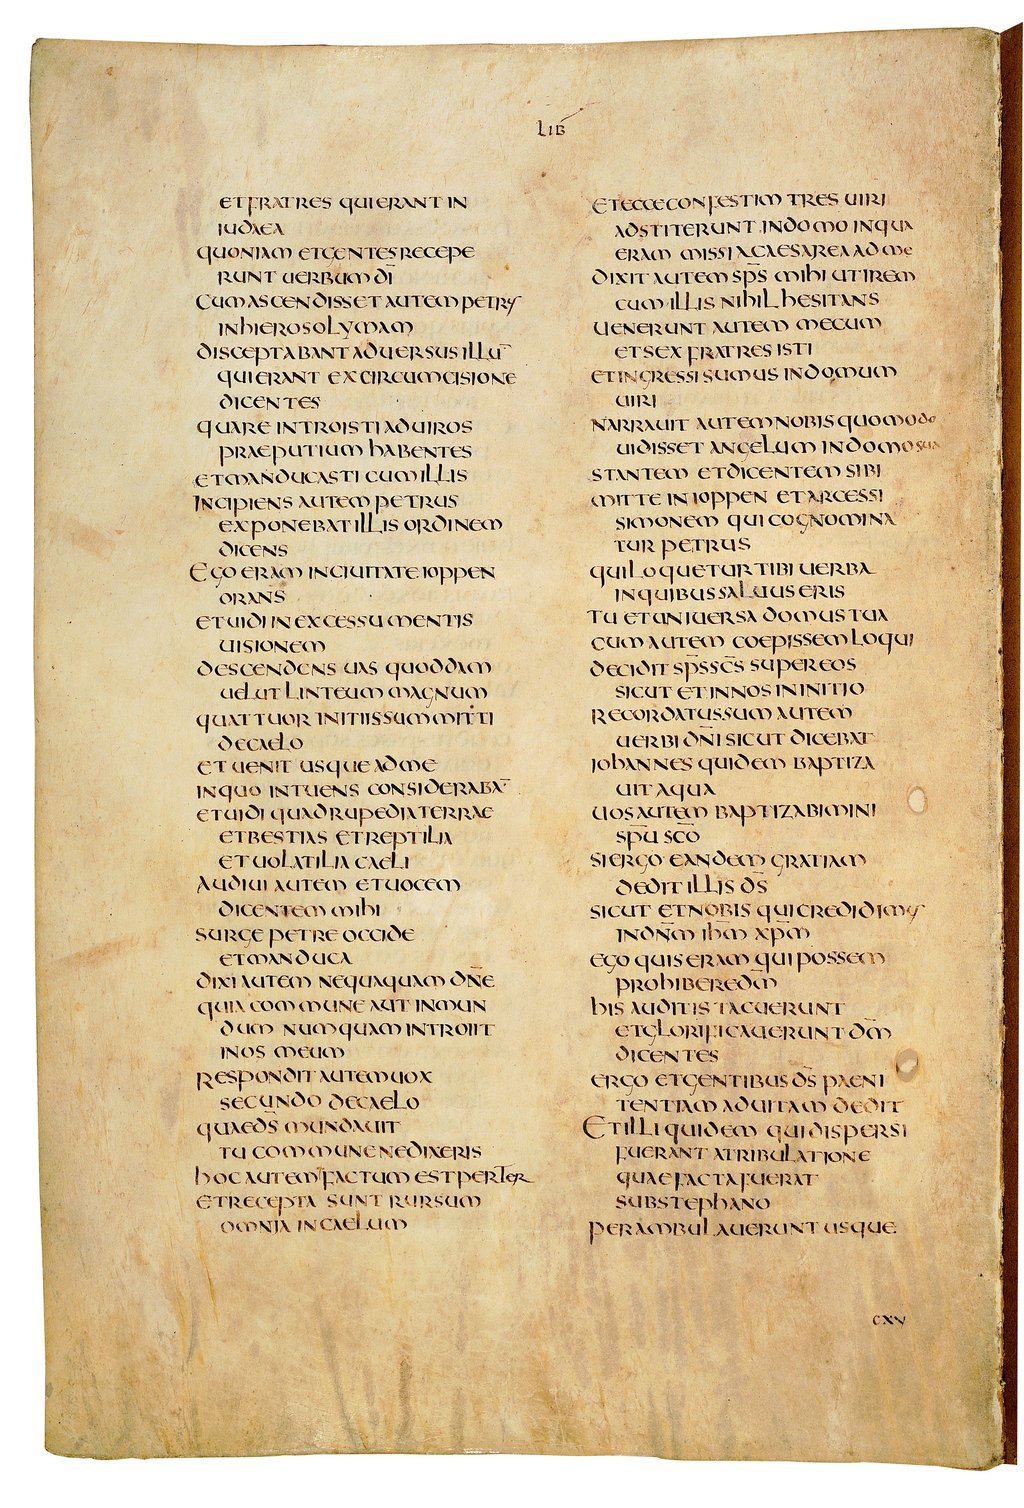 LIB
ET FRATRES QUI ERANT IN
IUDAEA
QUONIAM ET GENTES RECEPE
RUNT UERBUM DĪ
CUM ASCENDISSET AUTEM PETRUS
IN HIEROSOLYMAM
DISCEPTABANT ADUERSUS ILLŪ
QUI ERANT EX CIRCUMCISIONE
DICENTES
QUARE INTROISTI AD UIROS
PRAEPUTIUM HABENTES
ET MANDUCASTI CUM ILLIS
INCIPIENS AUTEM PETRUS
EXPONEBAT ILLIS ORDINEM
DICENS
EGO ERAM IN CIUITATE IOPPEN
ORANS
ET UIDI IN EXCESSU MENTIS
UISIONEM
DESCENDENS UAS QUODDAM
UELUT LINTEUM MAGNUM
QUATTUOR INITIIS SUMMITTI
DE CAELO
ET UENIT USQUE AD ME
IN QUO INTUENS CONSIDERABĀ
ET UIDI QUADRUPEDIA TERRAE
ET BESTIAS ET REPTILIA
ET UOLATILIA CAELI
AUDIUI AUTEM ET UOCEM
DICENTEM MIHI
SURGE PETRE OCCIDE
ET MANDUCA
DIXI AUTEM NEQUAQUAM DN̄E
QUIA COMMUNE AUT INMUN
DUM NUMQUAM INTROIIT
IN OS MEUM
RESPONDIT AUTEM UOX
SECUNDO DE CAELO
QUAE DS̄ MUNDAUIT
TU COMMUNE NE DIXERIS
HOC AUTEM FACTUM EST PER TER
ET RECEPTA SUNT RURSUM
OMNIA IN CAELUM
ET ECCE CONFESTIM TRES UIRI
ADSTITERUNT IN DOMO IN QUA
ERAM MISSI A CAESAREA AD ME
DIXIT AUTEM SPS̄ MIHI UT IREM
CUM ILLIS NIHIL HESITANS
UENERUNT AUTEM MECUM
ET SEX FRATRES ISTI
ET INGRESSI SUMUS IN DOMUM
UIRI
NARRAUIT AUTEM NOBIS QUOMODO
UIDISSET ANGELUM IN DOMO SUA
STANTEM ET DICENTEM SIBI
MITTE IN IOPPEN ET ARCESSI
SIMONEM QUI COGNOMINA
TUR PETRUS
QUI LOQUETUR TIBI UERBA
IN QUIBUS SALUUS ERIS
TU ET UNIUERSA DOMUS TUA
CUM AUTEM COEPISSEM LOQUI
DECIDIT SPS̄ SCS̄ SUPER EOS
SICUT ET IN NOS IN INITIO
RECORDATUS SUM AUTEM
UERBI DN̄I SICUT DICEBAT
IOHANNES QUIDEM BAPTIZA
UIT AQUA
UOS AUTEM BAPTIZABIMINI
SPŪ SCŌ
SI ERGO EANDEM GRATIAM
DEDIT ILLIS DS̄
SICUT ET NOBIS QUI CREDIDIMUS
IN DN̄M IHM̄ XPM̄
EGO QUIS ERAM QUI POSSEM
PROHIBERE DM̄
HIS AUDITIS TACUERUNT
ET GLORIFICAUERUNT DM̄
DICENTES
ERGO ET GENTIBUS DS̄ PAENI
TENTIAM AD UITAM DEDIT
ET ILLI QUIDEM QUI DISPERSI
FUERANT A TRIBULATIONE
QUAE FACTA FUERAT
SUB STEPHANO
PERAMBULAUERUNT USQUE
CXV